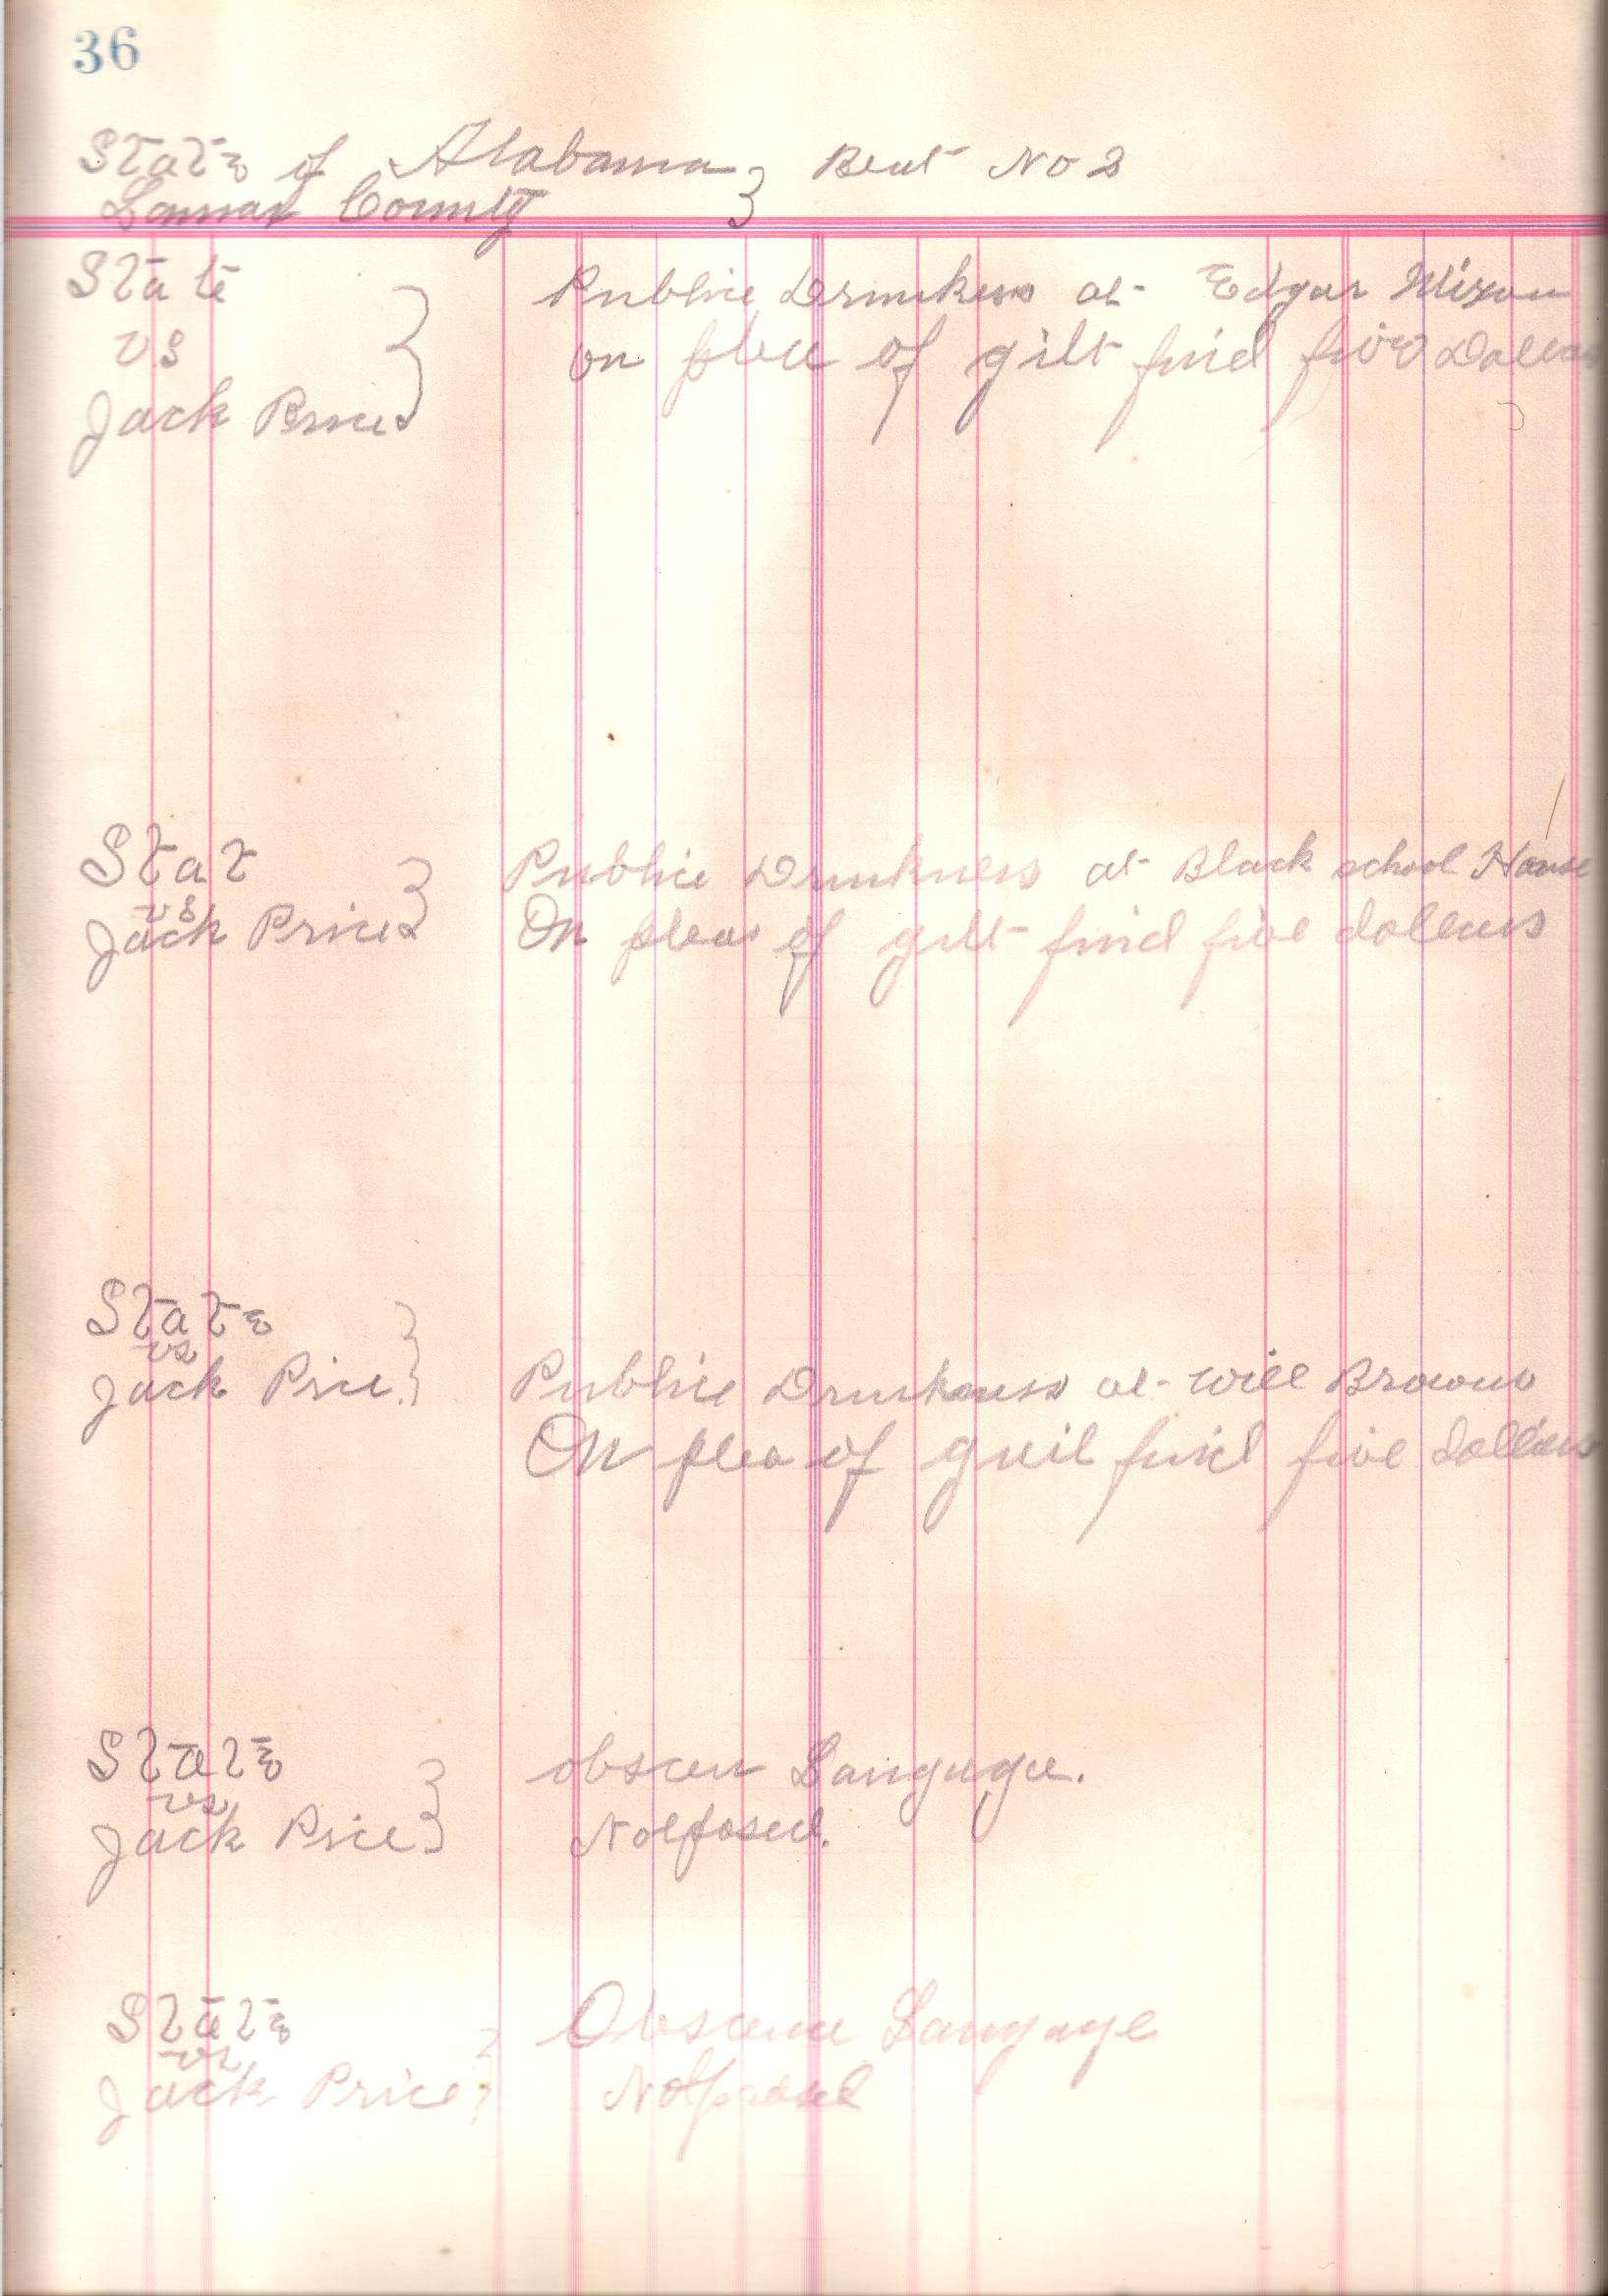 36
State of Alabama } Beat No 2
Lamar County }
State } Public Drunkness at Edgar Mixon
vs on plea of gilt find five Dollars
Jack Price
Stat } Public Drunkness at Black school House
vs
Jack Price On plea of gilt find five dollars
State }
vs
Jack Price Public Drunkness at Will Browns
On plea of guil find five dollars
State } obscen Languge.
vs
Jack Price Nolprosed.
State } Obscene Langage
vs
Jack Price Nolprosed